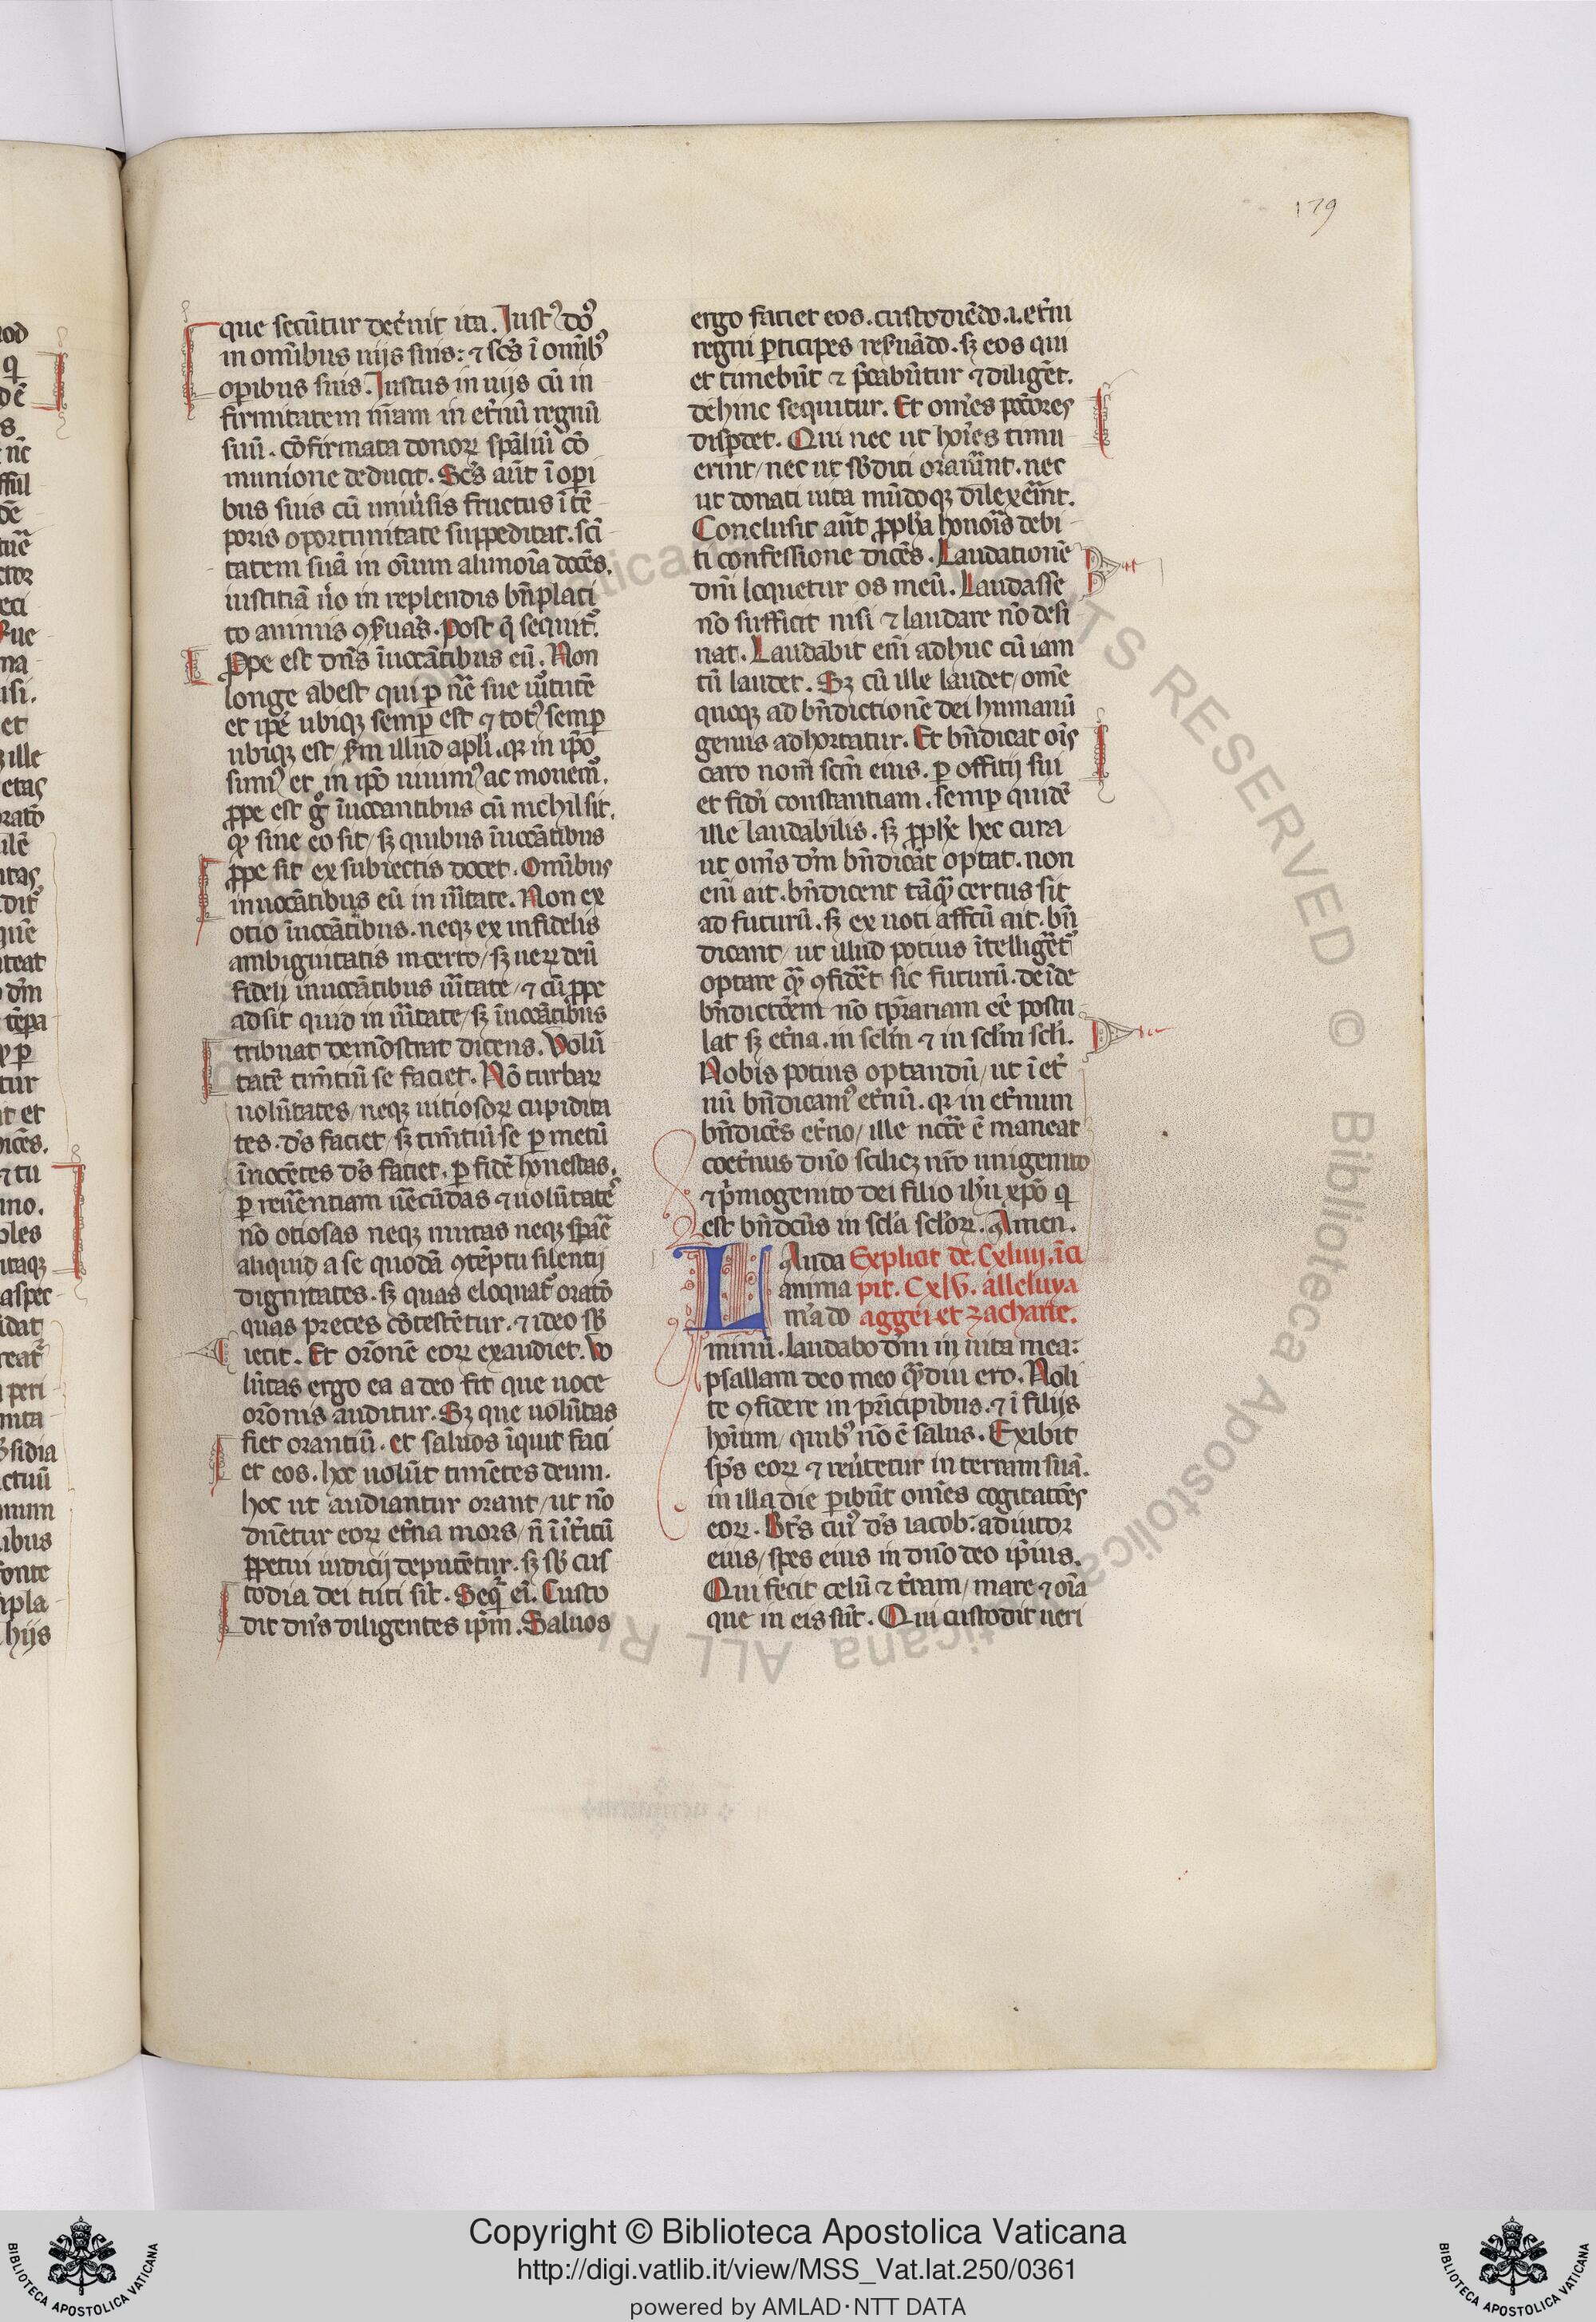 179
que secũtur dec̃nit ita. Iustꝰ dñs
in om̃ibus uijs suis: ⁊ sc̃s ĩ om̃ibꝰ
oꝑibus suis. Iustus in uijs cũ in
firmitatem nr̃am in et̃nũ regnũ
suũ. cõfirmata donoꝝ sp̃aliũ cõ
munione deducit. Sc̃s aũt ĩ oꝑi
bus suis cũ uniũsis fructus ĩ tẽ
poris oportunitate suppeditat. sc̃i
tatem suã in oĩum alimoĩa docẽs.
iustitiã ũo in replendis bñplaci
to animis ꝯẜuãs. Post q̃ sequit̃.
Ꝓpe est dñs ĩuocãtibus eũ. Non
longe abest qui ꝑ nr̃e sue ũtutẽ
et ip̃e ubiqꝫ semꝑ est ⁊ totꝰ semꝑ
ubiqꝫ est/ ẜm illud apl̃i. qꝛ in ip̃o
sumꝰ et in ip̃o uiuimꝰ ac mouem̃.
ꝓpe est gͦ ĩuocantibus cũ nichil sit.
qͥ sine eo sit/ sꝫ quibus ĩuocãtibus
ꝓpe sit ex subiectis docet. Om̃ibus
inuocãtibus eũ in ũitate. Non ex
otio ĩuocãtibus. neqꝫ ex infidelis
ambiguitatis incerto/ sꝫ ueꝝ deũ
fideli inuocãtibus ũitate/ ⁊ cũ ꝓpe
adsit quid in ũitate/ sꝫ ĩuocãtibus
tribuat demõstrat dicens. Volũ
tatẽ tim̃tiũ se faciet. Nõ turbaꝝ
uolũtates/ neqꝫ uitiosoꝝ cupidita
tes. dẽs faciet/ sꝫ tim̃tiũ se ꝑ metũ
ĩnocẽtes dẽs faciet. ꝑ fidẽ honestas.
ꝑ reũentiam uẽcũdas ⁊ uolũtatẽs
nõ otiosas neqꝫ mutas neqꝫ
aliquid a se quodã ꝯtẽptu silentij
dignitates. sꝫ quas eloquat̃ orat̃o
quas preces cõtestẽtur. ⁊ ideo sb̃
iecit. Et or̃onẽ eoꝝ exaudiet. Vo
lũtas ergo ea a deo fit que uoce
or̃onis auditur. Sꝫ que uolũtas
fiet orantiũ. et saluos ĩquit faci
et eos. hoc uolũt timẽtes deum.
hoc ut audiantur orant/ ut nõ
dñetur eoꝝ et̃na mors/ ñ ĩ ĩt̃itũ
ꝑpetui iudicij deputẽtur. sꝫ sb̃ cus
todia dei tuti sĩt. Seq̃ eĩ. Custo
dit dñs diligentes ip̃m. Saluos
ergo faciet eos. custodiẽdo .i. et̃ni
regni ꝑticipes reẜuãdo. sꝫ eos qui
et timebũt ⁊ p̃cabũtur ⁊ diligẽt.
dehinc sequitur. Et om̃es pc̃c̃ores
disꝑdet. Qui nec ut hoĩes timu
erint/ nec ut sb̃diti oraũint. nec
ut donati uita mũdoqꝫ dilexẽint.
Conclusit aũt ꝓph̃a honoĩs debi
ti confessione dicẽs. Laudationẽ
dñi loquetur os meũ. Laudasse
nõ sufficit nisi ⁊ laudare nõ desi
nat. Laudabit eĩm adhuc cũ iam
tũ laudet. Sꝫ cũ ille laudet/ om̃e
quoqꝫ ad bñdictionẽ dei humanũ
genus adhortatur. Et bñdicat oĩs
caro nom̃ sc̃m eius. ꝑ offitij sui
et fidei constantiam. semꝑ quidẽ
ille laudabilis. sꝫ ꝓph̃e hec cura
ut om̃s dm̃ bñdicãt optat. non
eĩm ait. bñdicent tãq̃ certus sit
ad futurũ. sꝫ ex uoti aff̃tũ ait. bñ
dicant/ ut illud potius ĩtelligẽt̃
optare q̃ ꝯfidẽt sic futurũ. deĩde
bñdict̃oẽm nõ tp̃rariam eẽ postu
lat sꝫ et̃na. in scl̃m ⁊ in scl̃m scl̃i.
Nobis potius optandũ/ ut ĩ et̃
nũ bñdicamꝰ et̃nũ. qꝛ in et̃num
bñdicẽs et̃no/ ille nc̃c̃e ẽ maneat
coet̃nus dño scilicꝫ nr̃o unigenito
⁊ p̃mogenito dei filio ih̃u xp̃o q̃
est bñdc̃us in scl̃a scl̃oꝝ. Amen.
LAuda Explicit de. Cxliiij. ĩci
anima pit. Cxlv. alleluya
m̃a do aggei et zacharie.
minũ. laudabo dm̃ in uita mea:
psallam deo meo q̃diu ero. Noli
te ꝯfidere in pr̃icipibus. ⁊ ĩ filijs
hoĩum/ quibꝰ nõ ẽ salus. Exibit
sp̃s eoꝝ ⁊ reũtetur in terram suã.
in illa die ꝑibũt om̃es cogitat̃oẽs
eoꝝ. Bt̃s cuiꝰ dẽs iacob: adiutor
eius/ spes eius in dño deo ip̃ius.
Qui fecit celũ ⁊ t̃ram/ mare ⁊ oĩa
que in eis sũt. Qui custodit ueri
Copyright © Biblioteca Apostolica Vaticana
http://digi.vatlib.it/view/MSS_Vat.lat.250/0361
powered by AMLAD·NTT DATA
BIBLIOTECA APOSTOLICA VATICANA
BIBLIOTECA APOSTOLICA VATICANA